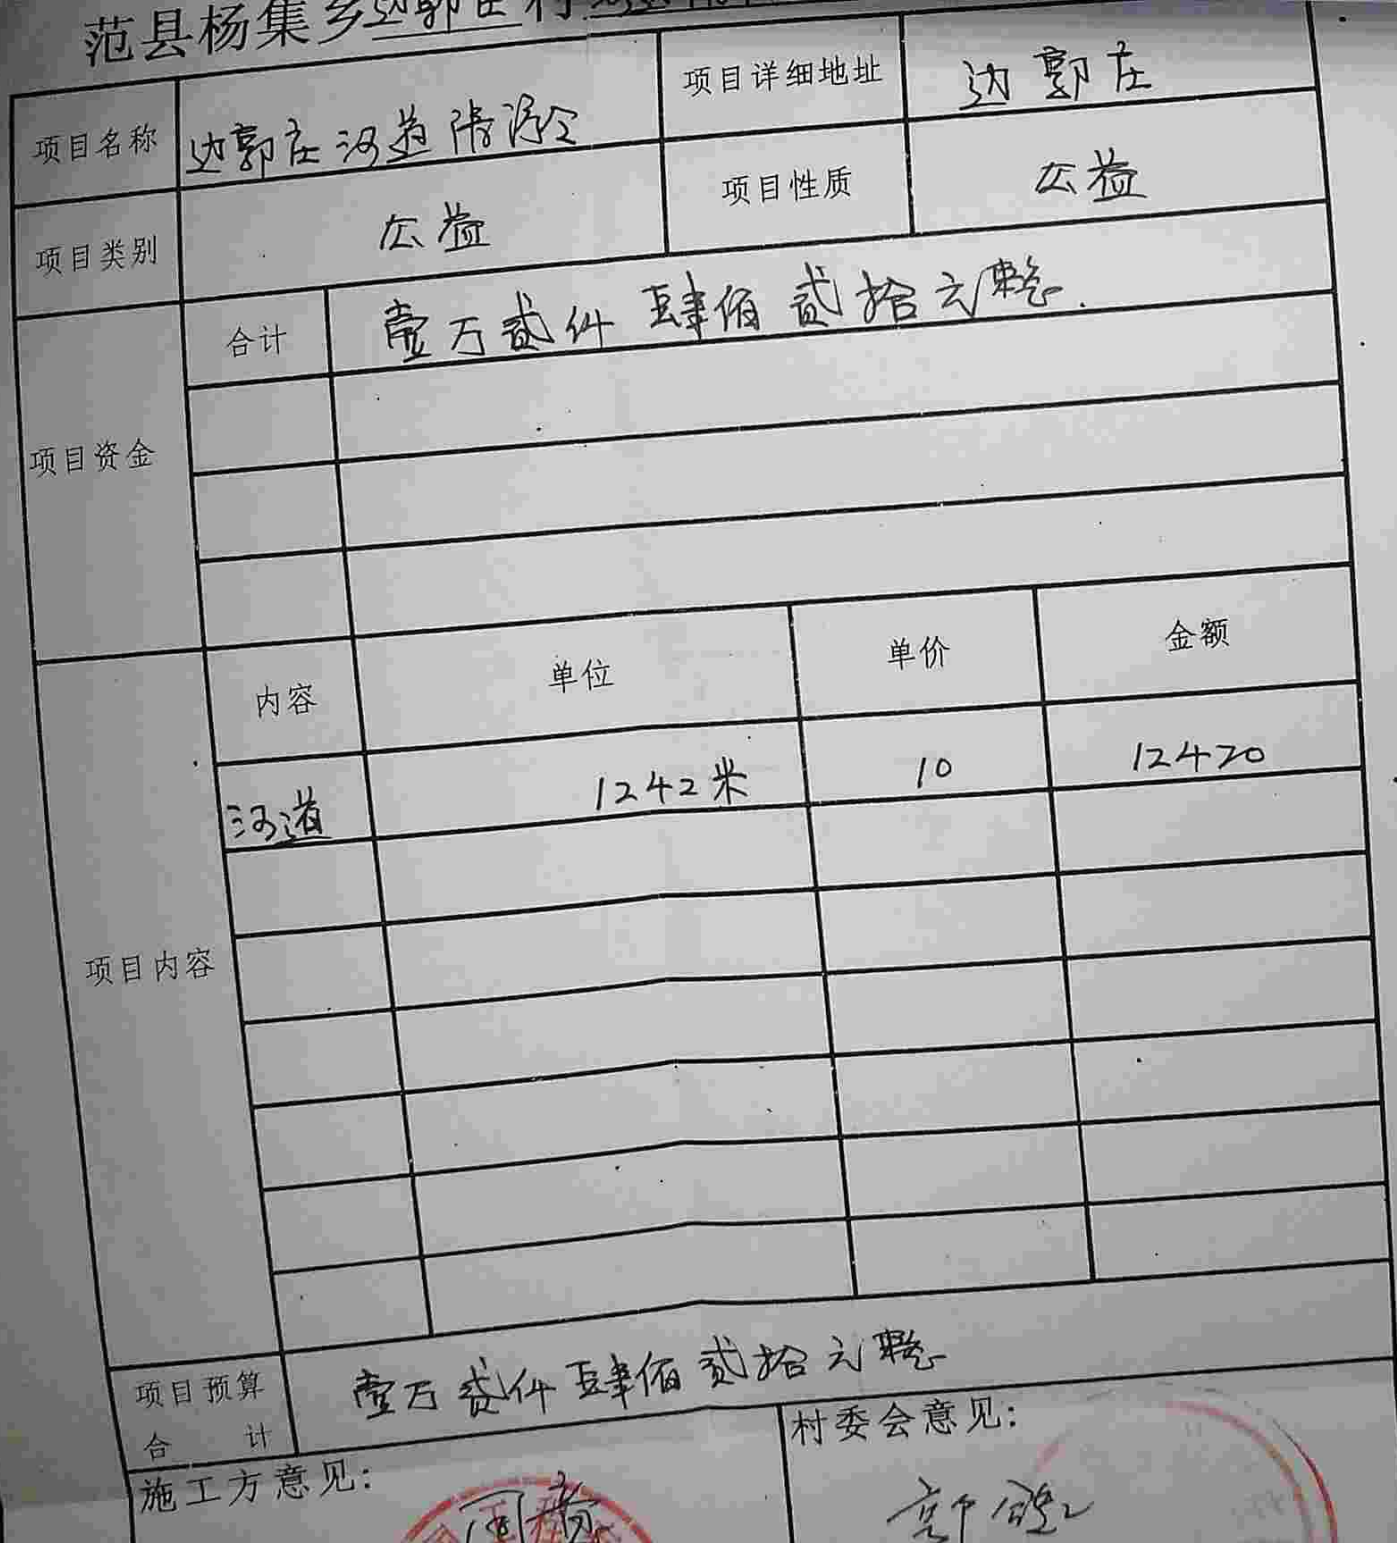 范县杨集乡边郭庄村
项目名称 边郭庄河道清淤 项目详细地址 边郭庄
项目类别 公益 项目性质 公益
项目资金 合计 壹万贰仟肆佰贰拾元整
项目内容 内容 单位 单价 金额
河道 1242米 10 12420
项目预算合计 壹万贰仟肆佰贰拾元整
施工方意见: 村委会意见:
同意